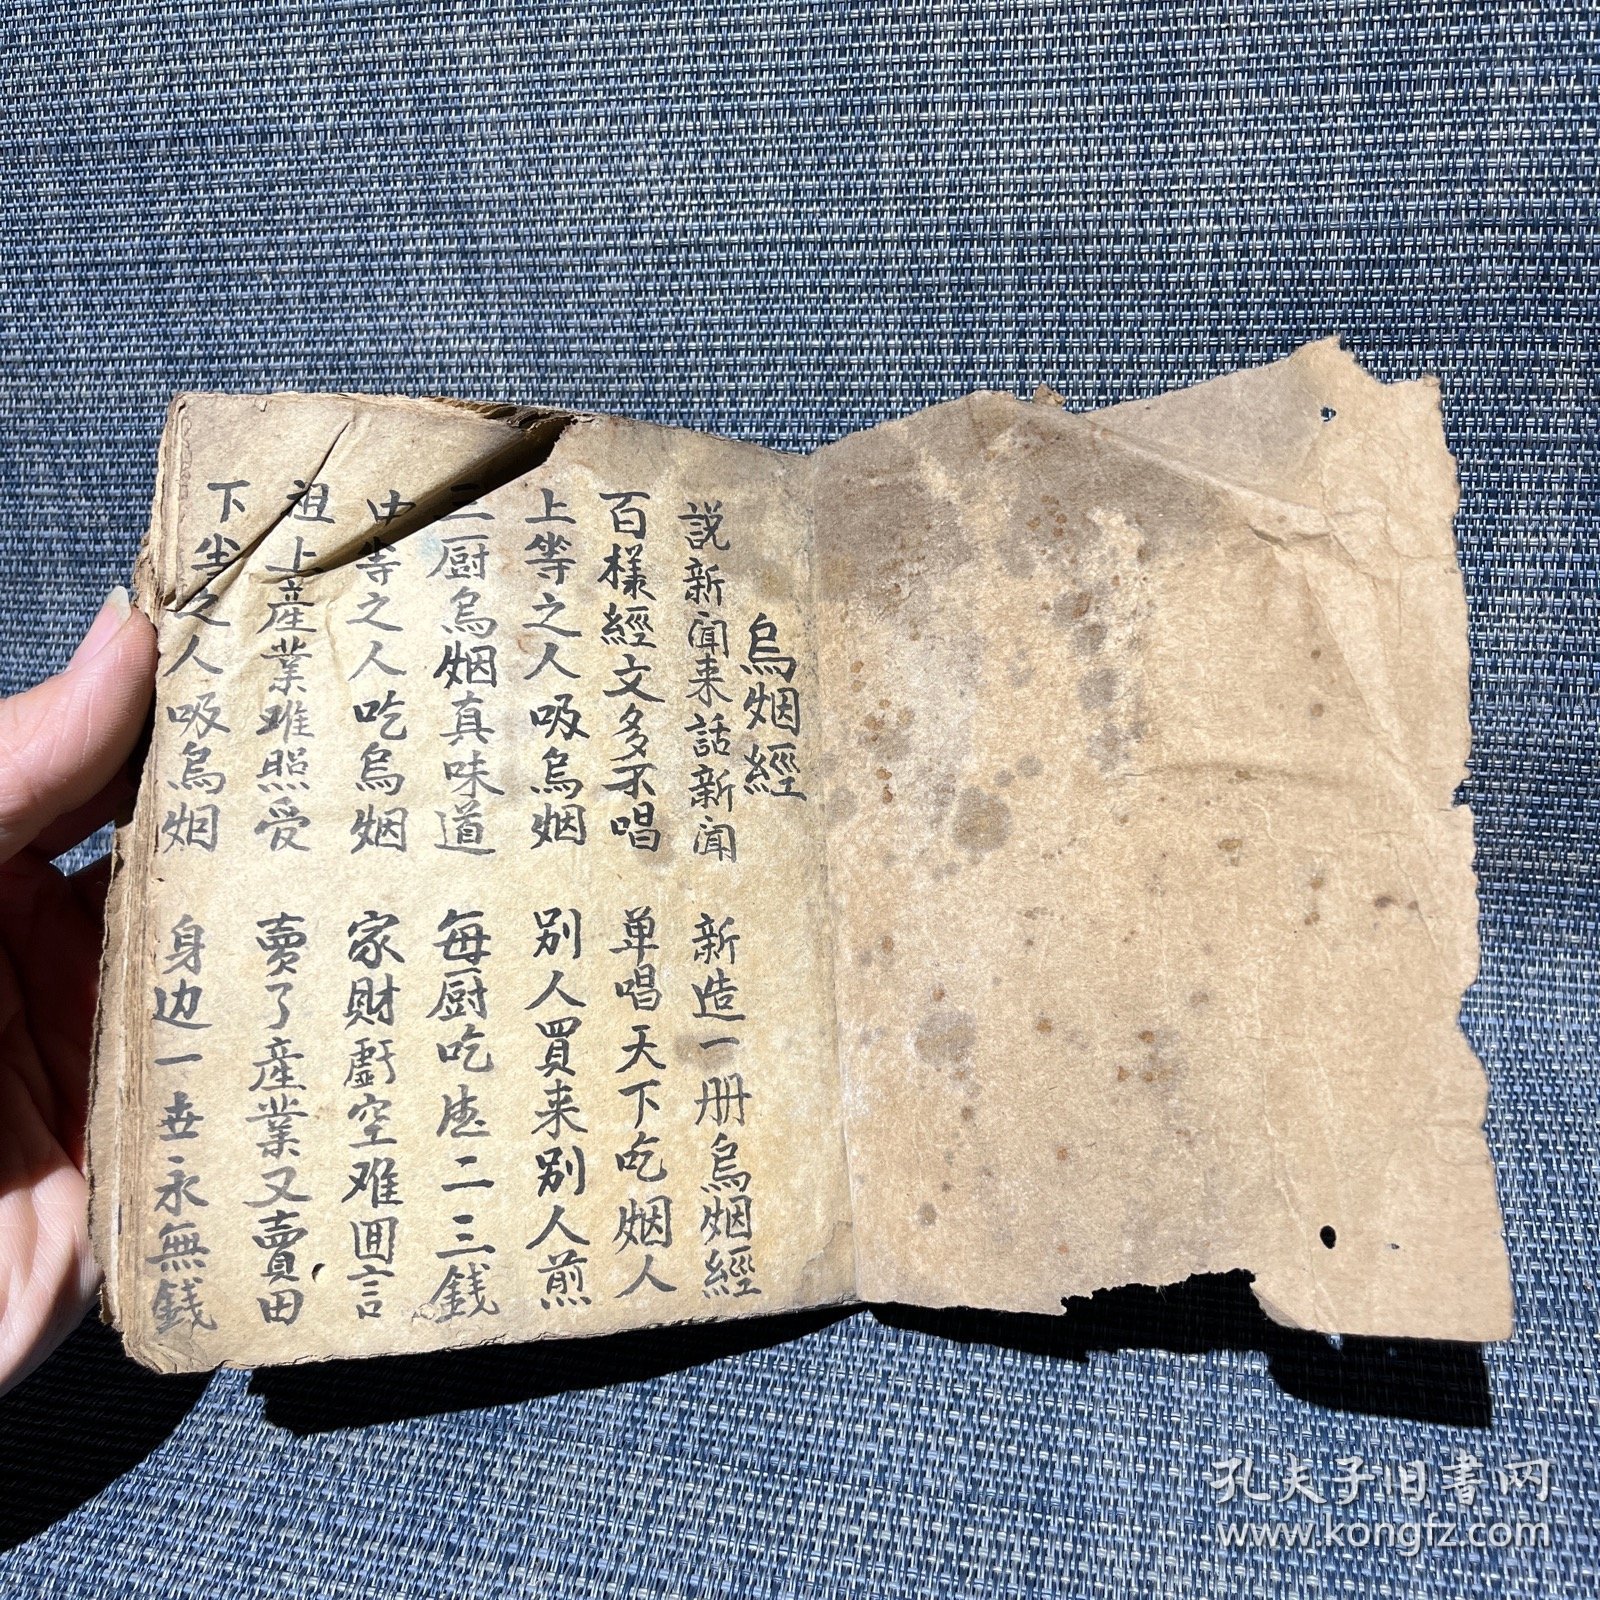 烏烟經
説新聞来話新聞 新造一册烏烟經
百樣經文多不唱 单唱天下吃烟人
上等之人吸烏烟 别人買来别人煎
三厨烏烟真味道 每厨吃二三錢
中等之人吃烏烟 家財虧空难囬言
祖上產業难照受 賣了產業又賣田
下坐之人吸烏烟 身边一世永無錢
孔夫子旧書网
www.kongfz.com